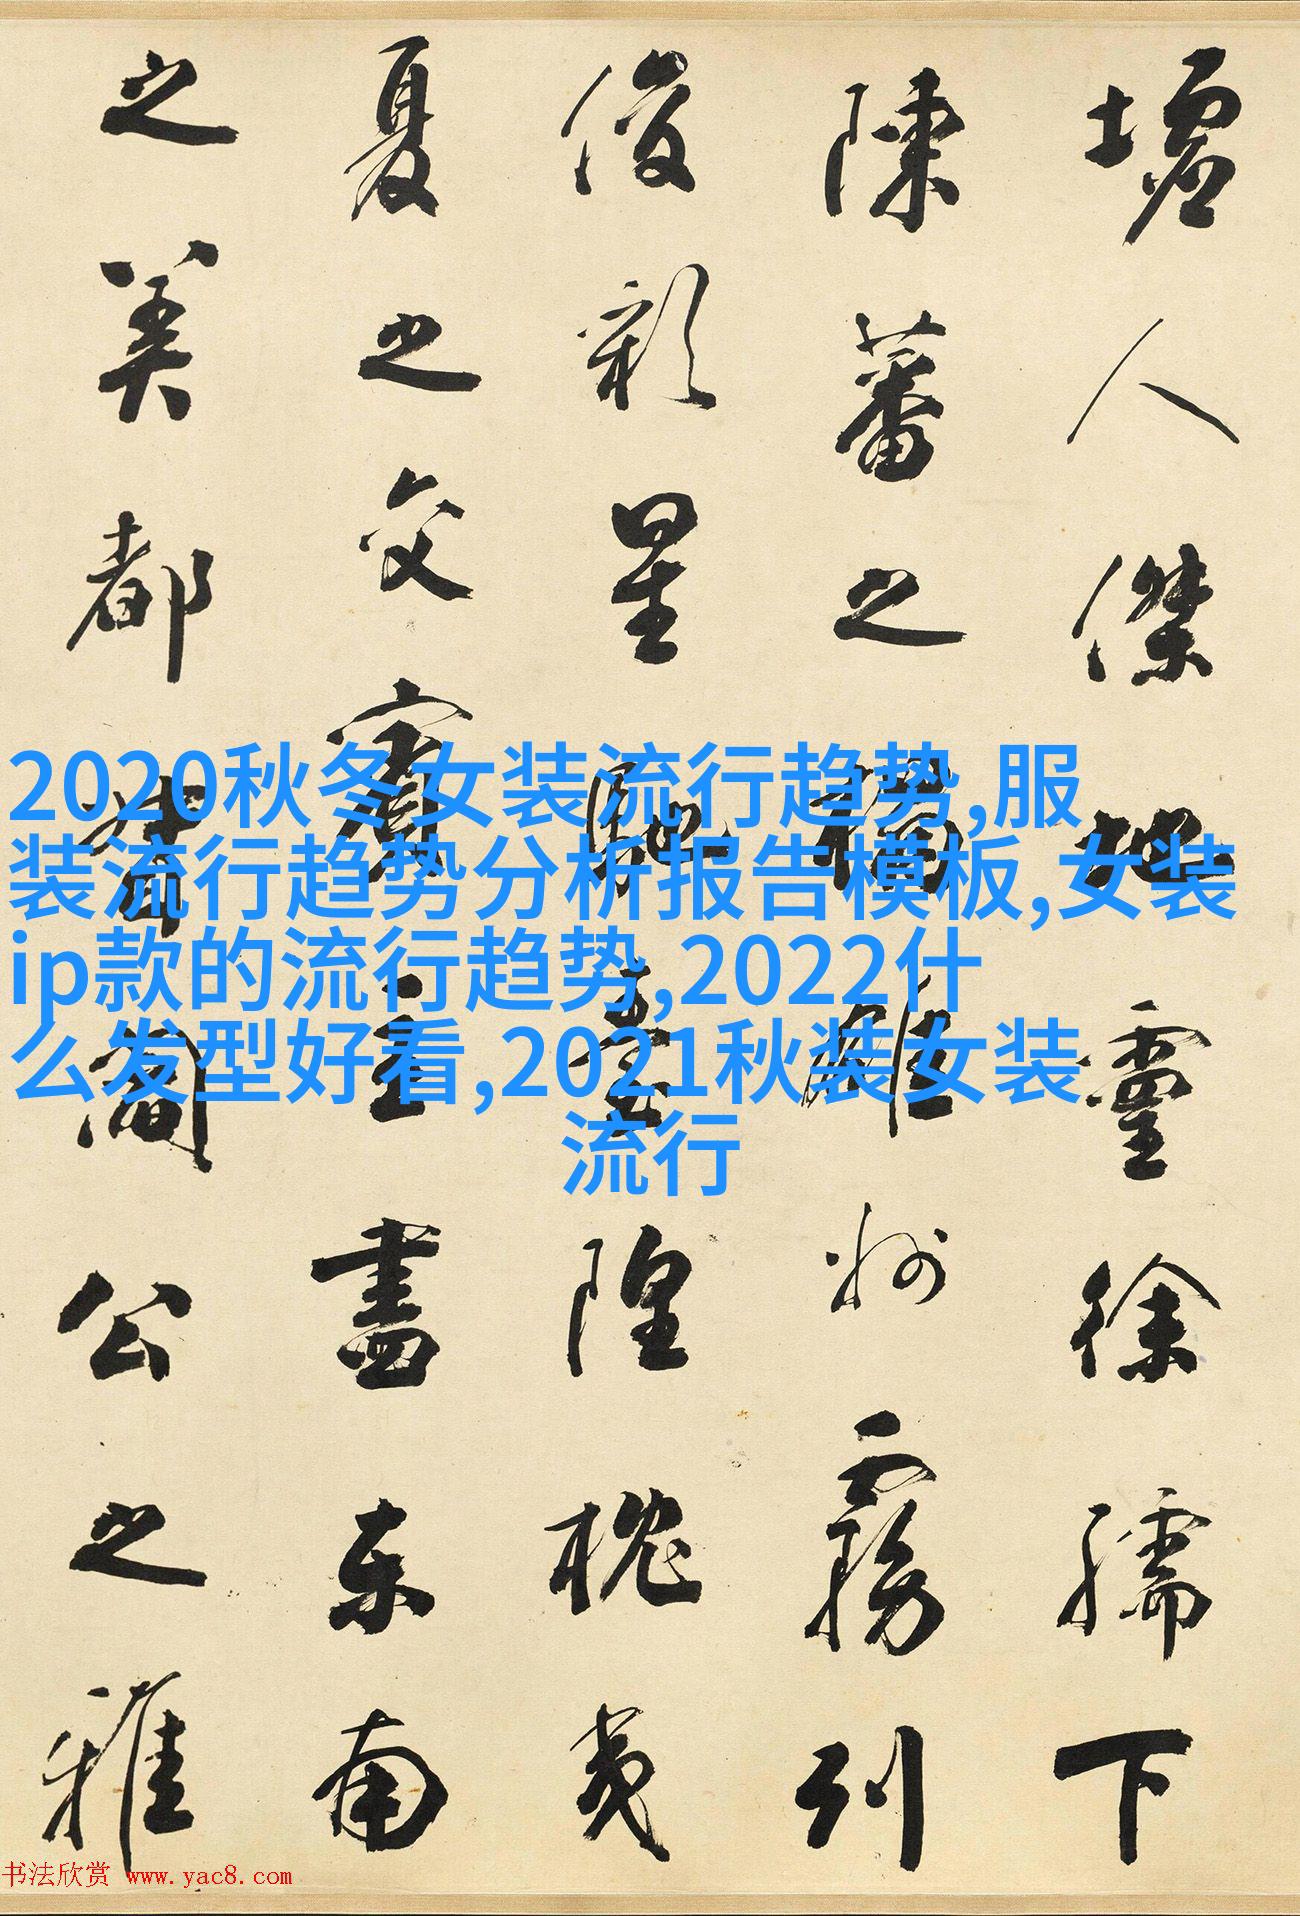 墟人傑地靈徐孺下
陳蕃之榻雄州霧列
俊彩星馳臺隍枕夷
夏之交賓主盡東南
之美都督閻公之雅
2020秋冬女装流行趋势,服
装流行趋势分析报告模板,女装
ip款的流行趋势,2022什
么发型好看,2021秋装女装
流行
书法欣赏 www.yac8.com